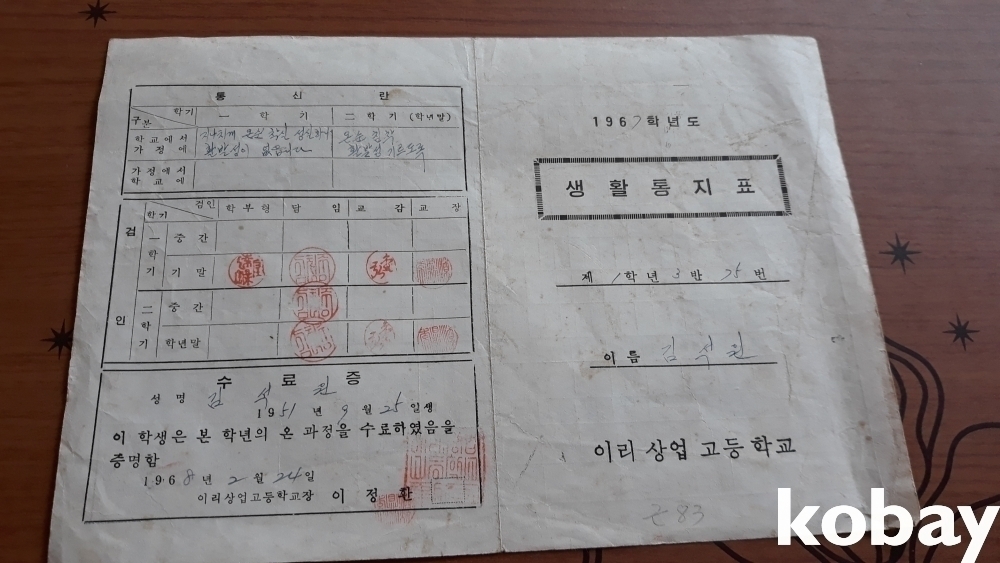 통 신 란
학기
구분
一 학 기
二 학 기 (학년말)
학교에서
가 정 에
온순 착실
활발성이 없읍니다
온순 착실
활발성 기르도록
가정에서
학 교 에
검인
학기
학 부 형
담 임
교 감
교 장
검
인
一 학 기
중 간
기 말
二 학 기
중 간
학년말
수 료 증
성 명 김 석 원
1951 년 9 월 25 일생
이 학생은 본 학년의 온 과정을 수료하였음을
증명함
1968 년 2 월 24일
이리상업고등학교장 이 정 환
1967학년도
생 활 통 지 표
제 1학년 3 반 25 번
이 름 김 석 원
이리 상업 고등 학교
83
kobay